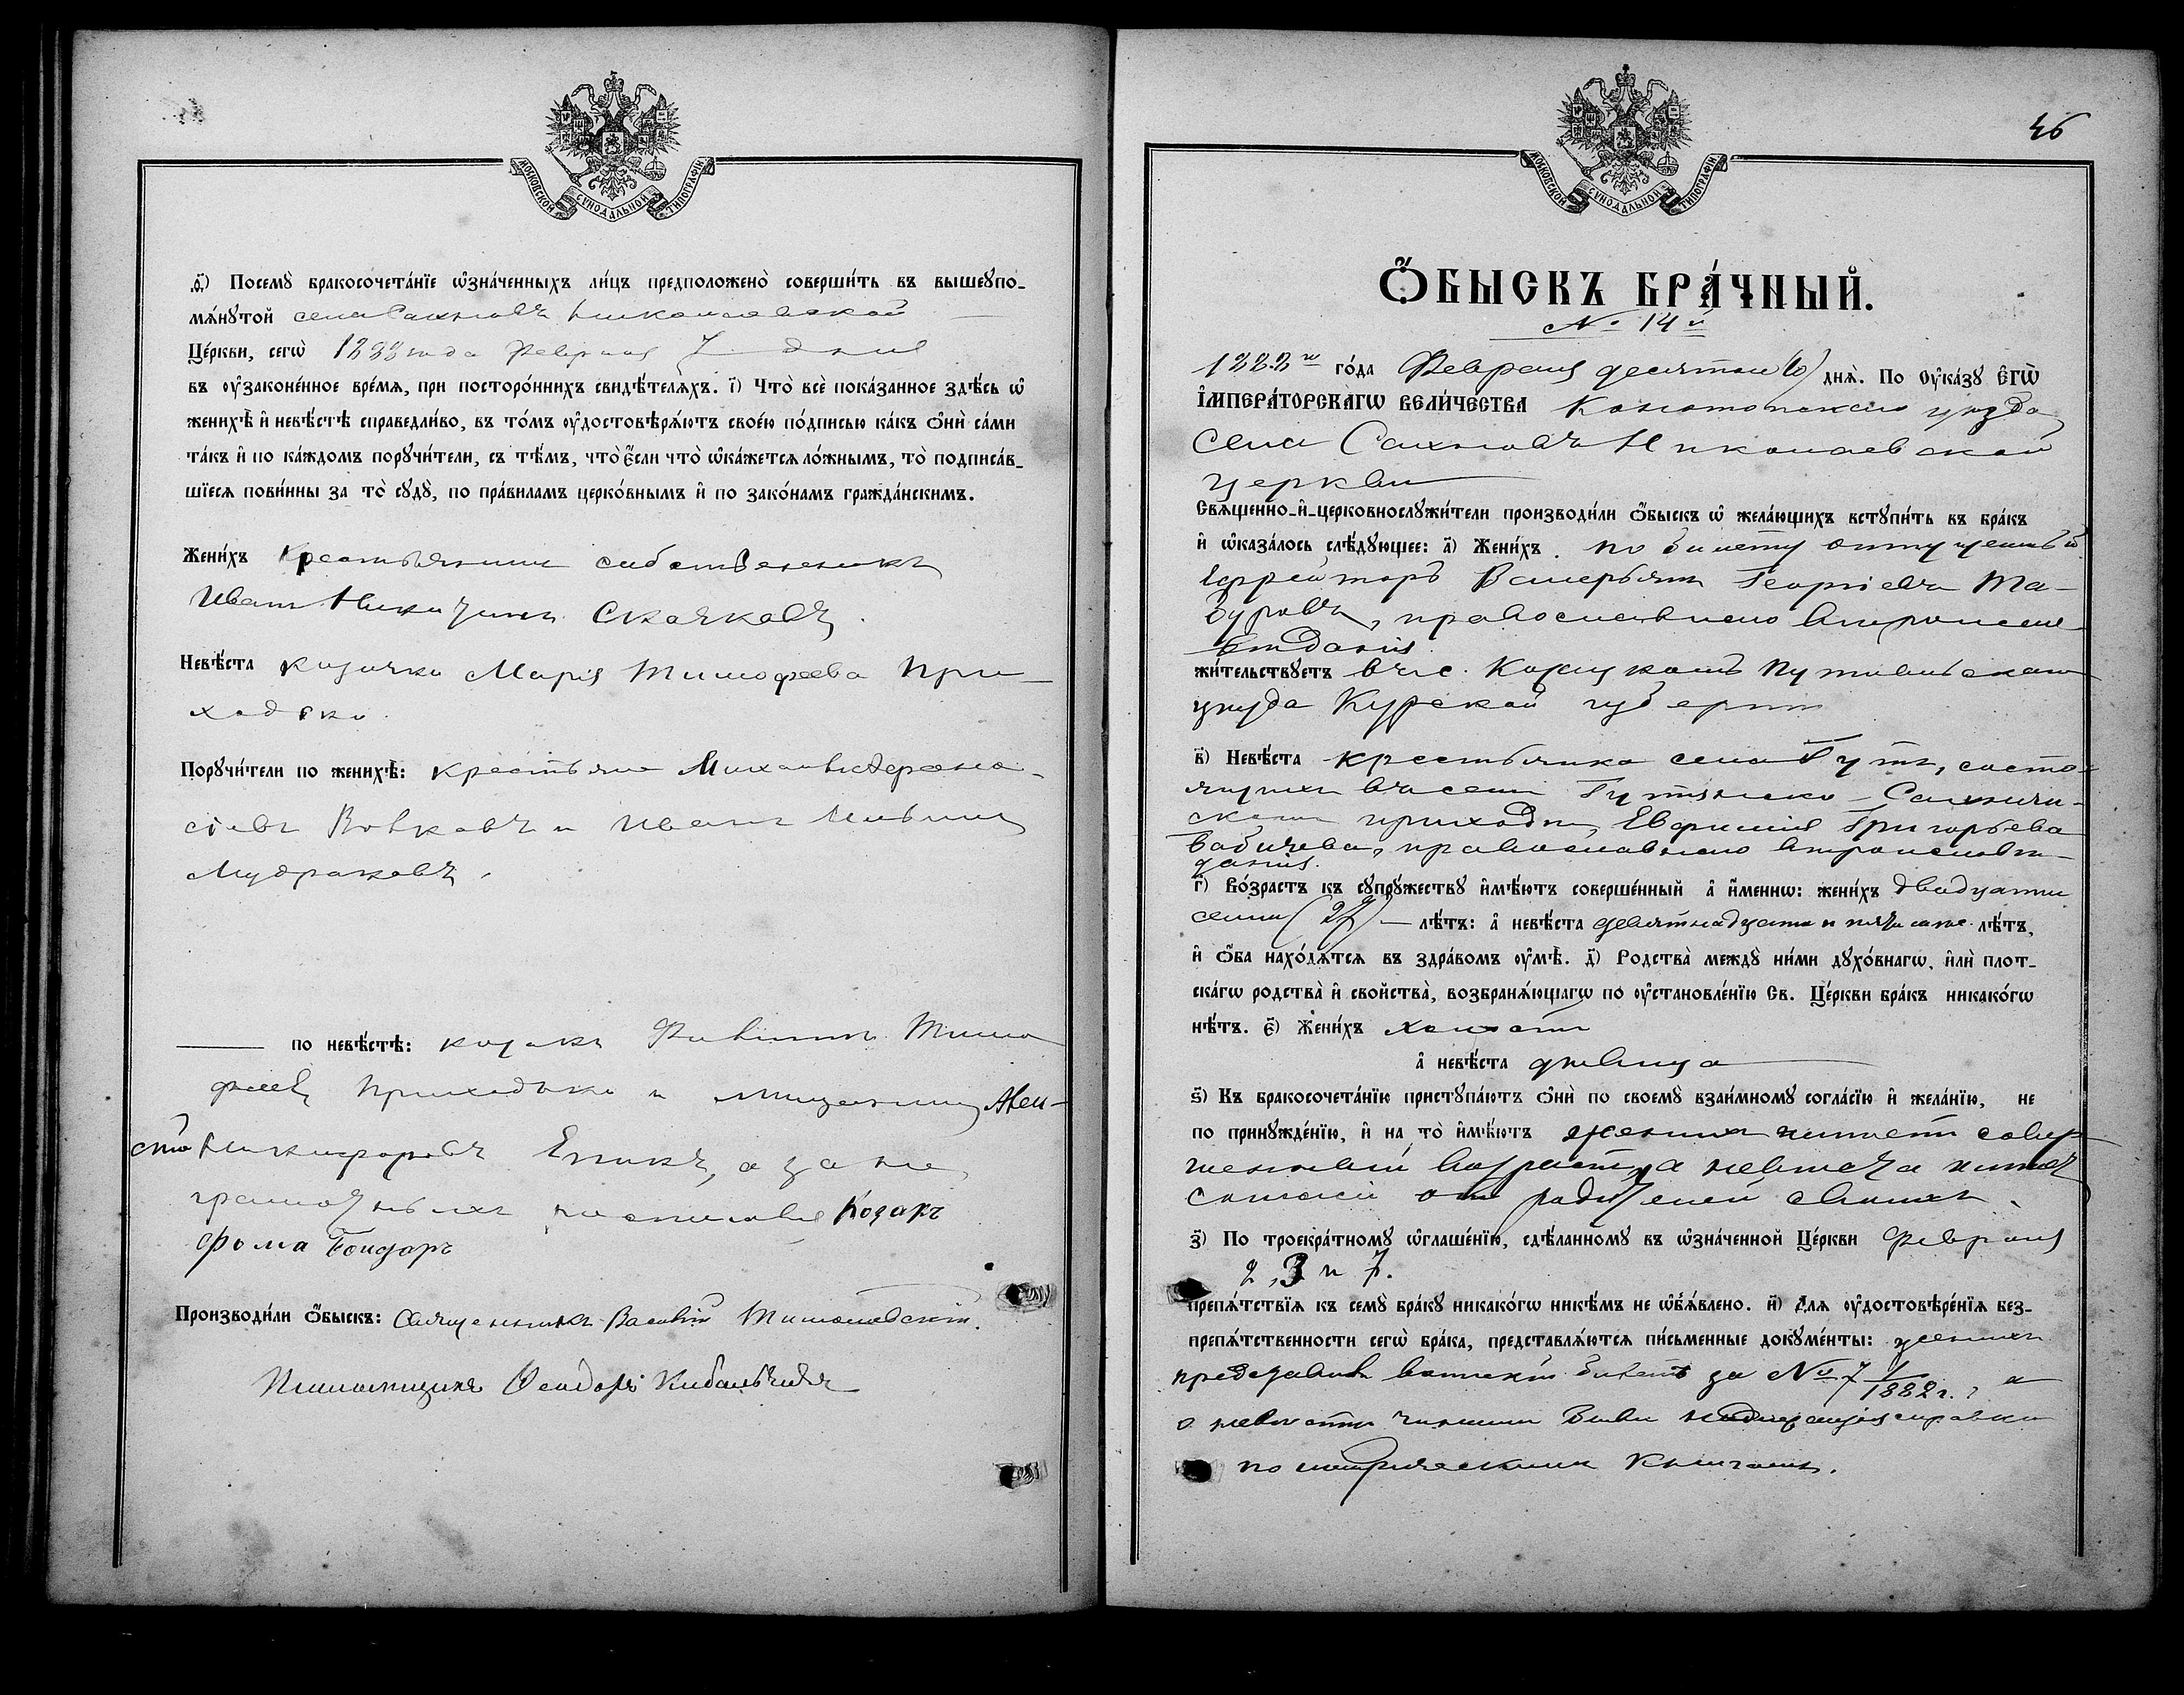 МОСКОВСКОЙ СУНОДАЛЬНОЙ ТИПОГРАФІИ
ѳ҃) Посемꙋ̀ бракосочета́нїе ѡ҆зна́ченныхъ ли́цъ предположено̀ соверши́ть въ вышеꙋпо-
мѧ́нꙋтой села Сахновъ Николаевской
Це́ркви, сегѡ̀ 1888 года Февраля 7 дня
въ ᲂу҆законе́нное вре́мѧ, при посторо́ннихъ свидѣ́телѧхъ. і҃) Что̀ всѐ пока́занное здѣ́сь ѡ҆
женихѣ̀ и҆ невѣ́стѣ справедли́во, въ то́мъ ᲂу҆достовѣрѧ́ютъ свое́ю по́дписью ка́къ ѻ҆нѝ са́ми
та́къ и҆ по ка́ждомъ порꙋчи́тели, съ тѣ́мъ, что̀ є҆́сли что̀ ѡ҆ка́жетсѧ ло́жнымъ, то̀ подписа́в-
шїесѧ пови́нны за то̀ сꙋдꙋ̀, по пра́виламъ церко́внымъ и҆ по зако́намъ гражда́нскимъ.
Жени́хъ крестьянинъ собственникъ
Иванъ Никитинъ Скачковъ.
Невѣ́ста козачка Марія Тимофеева При-
ходько.
Порꙋчи́тели по женихѣ̀: крестьяне Михаилъ
Вовковъ и Иванъ
Мудраковъ.
по невѣ́стѣ: козакъ Тимо
феевъ Приходько и мещанинъ Авгу-
стъ Никифоровъ а за не
грамотныхъ росписався Козакъ
Фома Бондарь
Производи́ли ѻ҆́быскъ: Священникъ Василій
Псаломщикъ Феодоръ Кибальчичъ
46
МОСКОВСКОЙ СУНОДАЛЬНОЙ ТИПОГРАФІИ
Ѻ҆́БЫСКЪ БРА́ЧНЫЙ.
№ 14й
188 го́да Февраля десятаго (10) днѧ̀. По ᲂу҆ка́зꙋ є҆гѡ̀
и҆мпера́торскагѡ вели́чества Конотопскаго уѣзда
села Сахновъ Николаевской
церкви
Свѧщенно-и҆-церковнослꙋжи́тели производи́ли ѻ҆́быскъ ѡ҆ жела́ющихъ встꙋпи́ть въ бра́къ
и҆ ѡ҆каза́лось слѣ́дꙋющее: а҃) Жени́хъ. по билету отпущенный
Ефрейторъ Валерьянъ Георгіевъ Ма-
зуровъ, православнаго вѣроиспо-
вѣданія.
жи́тельствꙋетъ въ с. Козацкомъ Путивльскаго
уѣзда Курской губерніи
в҃) Невѣ́ста крестьянка села Гутъ, состо-
Гутянско-Сахнов-
скомъ приходѣ, Евфимія Григорьева
Бабичева, православнаго вѣроисповѣ-
данія.
г҃) Во́зрастъ къ сꙋпрꙋ́жествꙋ и҆мѣ́ютъ соверше́нный а҆ и҆́меннѡ: жени́хъ двадцати
семи (27) лѣ́тъ: а҆ невѣ́ста девятнадцати лѣ́тъ,
и҆ ѻ҆́ба нахо́дѧтсѧ въ здра́вомъ ᲂу҆мѣ̀. д҃) Родства̀ междꙋ̀ ни́ми дꙋхо́внагѡ, и҆лѝ плот-
ска́гѡ родства̀ и҆ свойства̀, возбранѧ́ющагѡ по ᲂу҆становле́нїю Св. Це́ркви бра́къ никако́гѡ
нѣ́тъ. є҃) Жени́хъ холостъ
а҆ невѣ́ста дѣвица
ѕ҃) Къ бракосочета́нїю пристꙋпа́ютъ ѻ҆нѝ по своемꙋ̀ взаи́мномꙋ согла́сїю и҆ жела́нїю, не
по принꙋжде́нїю, и҆ на то̀ и҆мѣ́ютъ женихъ имѣетъ совер-
шенный возрастъ, а невѣста имѣетъ
согласіе отъ родителей своихъ.
з҃) По троекра́тномꙋ ѡ҆глаше́нїю, сдѣ́ланномꙋ въ ѡ҆зна́ченной Це́ркви Февраля
2, 3 и 7.
препѧ́тствїѧ къ семꙋ̀ бра́кꙋ никако́гѡ никѣ́мъ не ѡ҆б̾ѧ́влено. и҃) Длѧ ᲂу҆достовѣре́нїѧ без-
препѧ́тственности сегѡ̀ бра́ка, представлѧ́ютсѧ пи́сьменные докꙋме́нты: женихъ
представилъ воинскій билетъ за № 7 1882 г., а
о невѣстѣ чинима была надлежащая справка
по метрическимъ книгамъ.